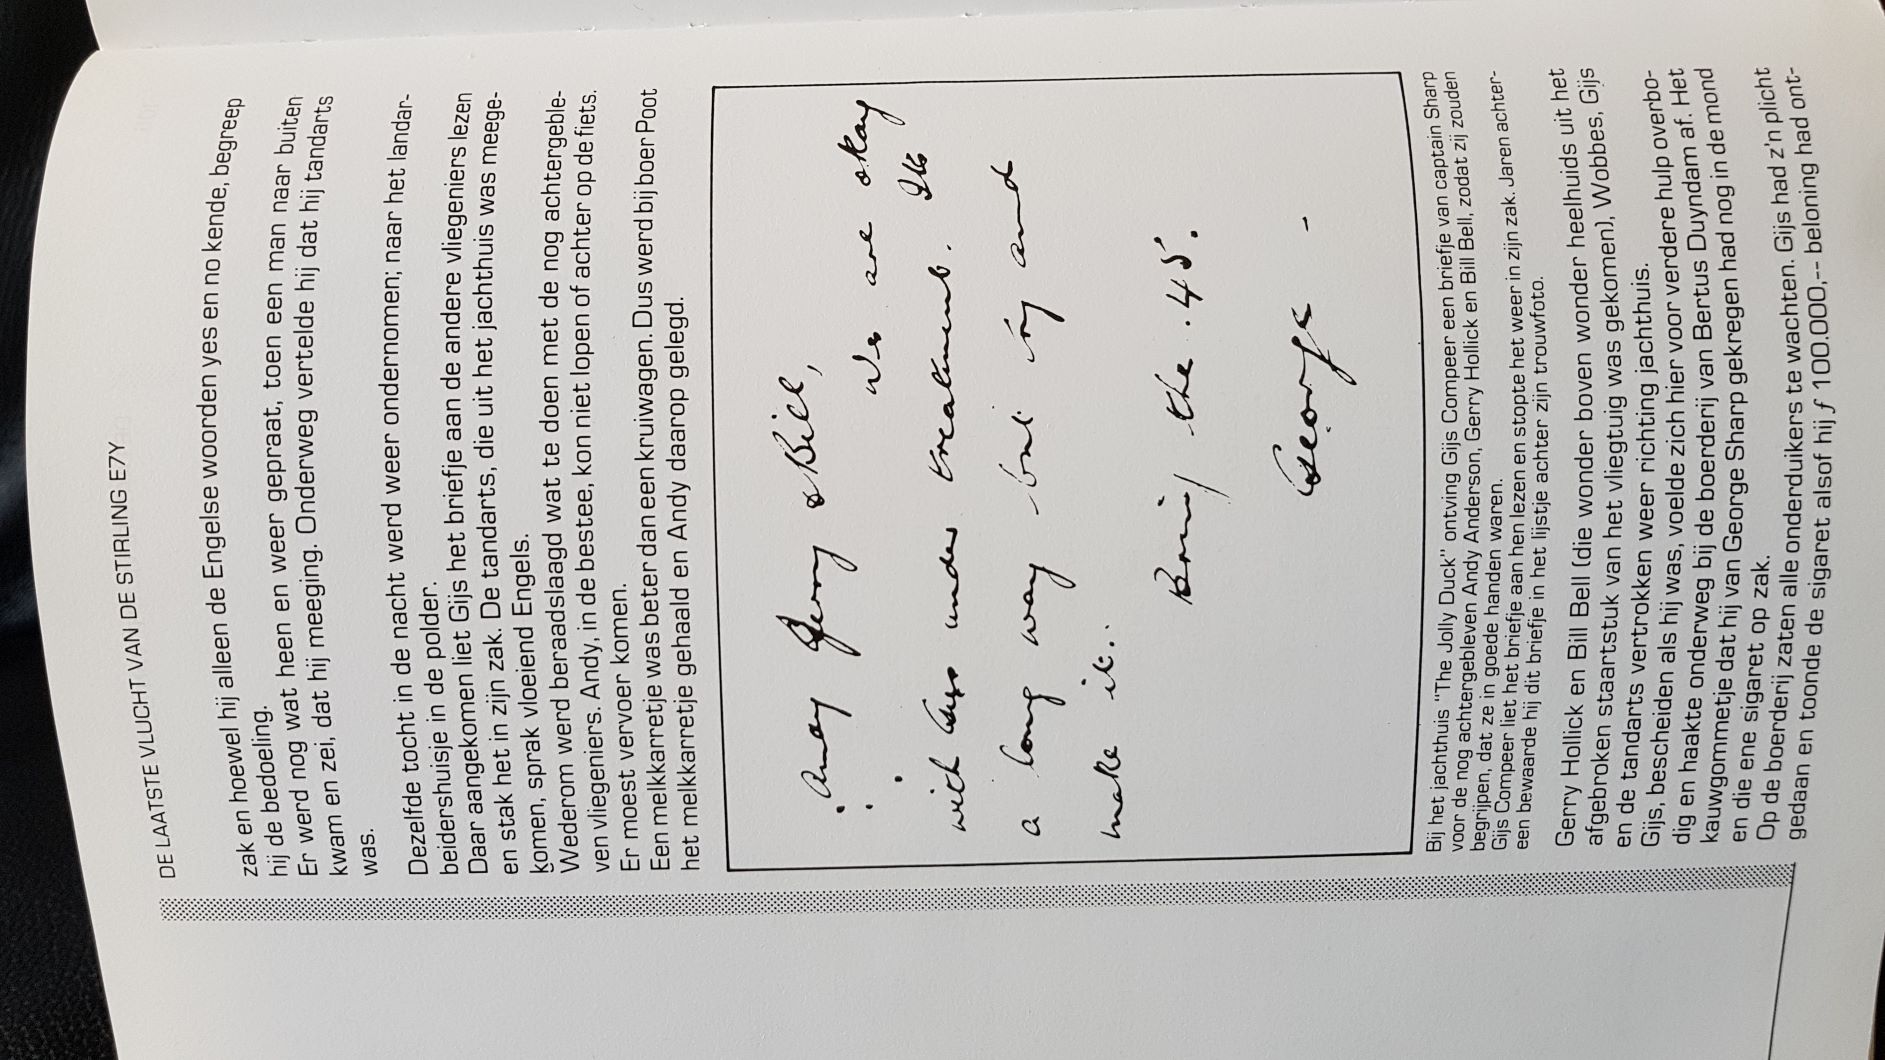 DE LAATSTE VLUCHT VAN DE STIRLING E7Y
zak en hoewel hij alleen de Engelse woorden yes en no kende, begreep
hij de bedoeling.
Er werd nog wat heen en weer gepraat, toen een man naar buiten
kwam en zei, dat hij meeging. Onderweg vertelde hij dat hij tandarts
was.
Dezelfde tocht in de nacht werd weer ondernomen; naar het landar-
beidershuisje in de polder.
Daar aangekomen liet Gijs het briefje aan de andere vliegeniers lezen
en stak het in zijn zak. De tandarts, die uit het jachthuis was meege-
komen, sprak vloeiend Engels.
Wederom werd beraadslaagd wat te doen met de nog achtergeble-
ven vliegeniers. Andy, in de bestee, kon niet lopen of achter op de fiets.
Er moest vervoer komen.
Een melkkarretje was beter dan een kruiwagen. Dus werd bij boer Poot
het melkkarretje gehaald en Andy daarop gelegd.
Andy Jerry & Bill,
We are okay
with Gus under treatment. Its
a long way but try and
make it.
Bring the .45.
George -
Bij het jachthuis "The Jolly Duck" ontving Gijs Compeer een briefje van captain Sharp
voor de nog achtergebleven Andy Anderson, Gerry Hollick en Bill Bell, zodat zij zouden
begrijpen, dat ze in goede handen waren.
Gijs Compeer liet het briefje aan hen lezen en stopte het weer in zijn zak. Jaren achter-
een bewaarde hij dit briefje in het lijstje achter zijn trouwfoto.
Gerry Hollick en Bill Bell (die wonder boven wonder heelhuids uit het
afgebroken staartstuk van het vliegtuig was gekomen), Wobbes, Gijs
en de tandarts vertrokken weer richting jachthuis.
Gijs, bescheiden als hij was, voelde zich hier voor verdere hulp overbo-
dig en haakte onderweg bij de boerderij van Bertus Duyndam af. Het
kauwgommetje dat hij van George Sharp gekregen had nog in de mond
en die ene sigaret op zak.
Op de boerderij zaten alle onderduikers te wachten. Gijs had z'n plicht
gedaan en toonde de sigaret alsof hij ƒ 100.000,-- beloning had ont-